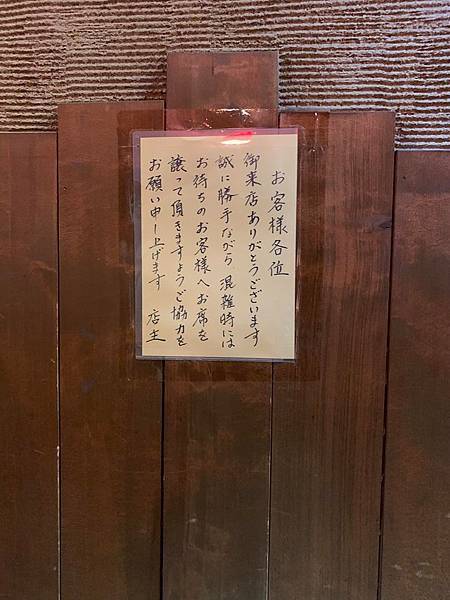 お客様各位
御来店ありがとうございます
誠に勝手ながら 混雑時には
お待ちのお客様へお席を
譲って頂きますようご協力を
お願い申し上げます 店主